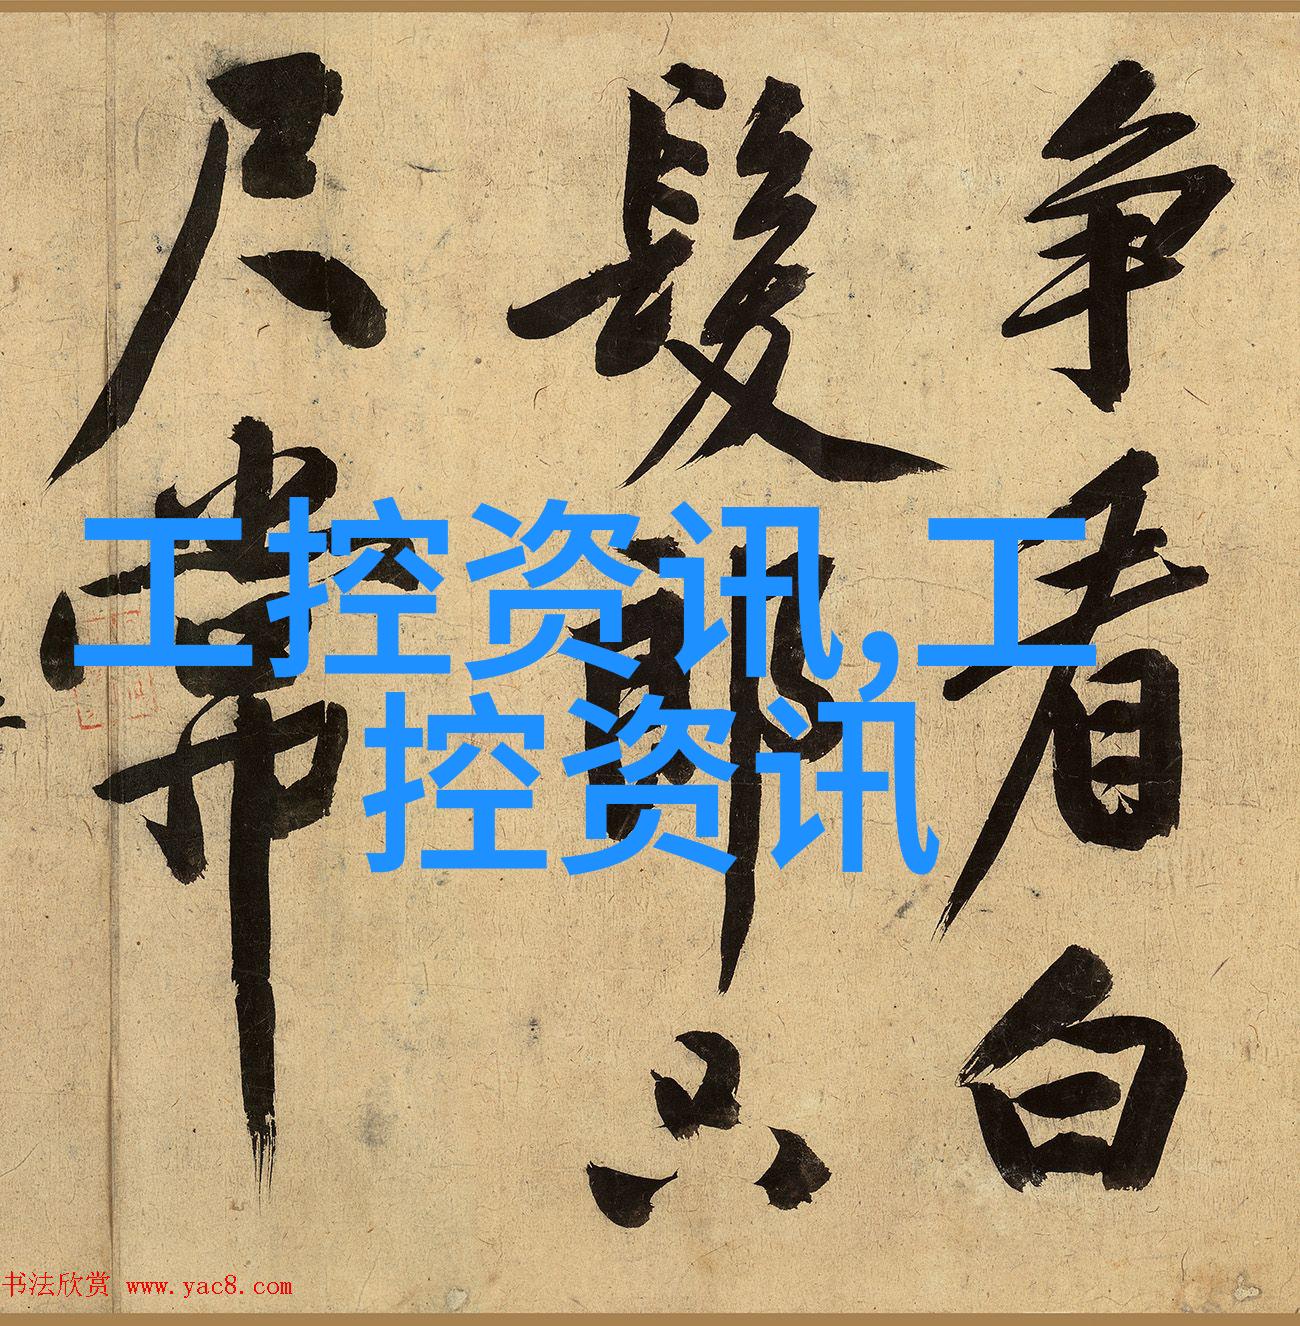 争看白
髮郎只
尺常
工控资讯,工
控资讯
书法欣赏 www.yac8.com